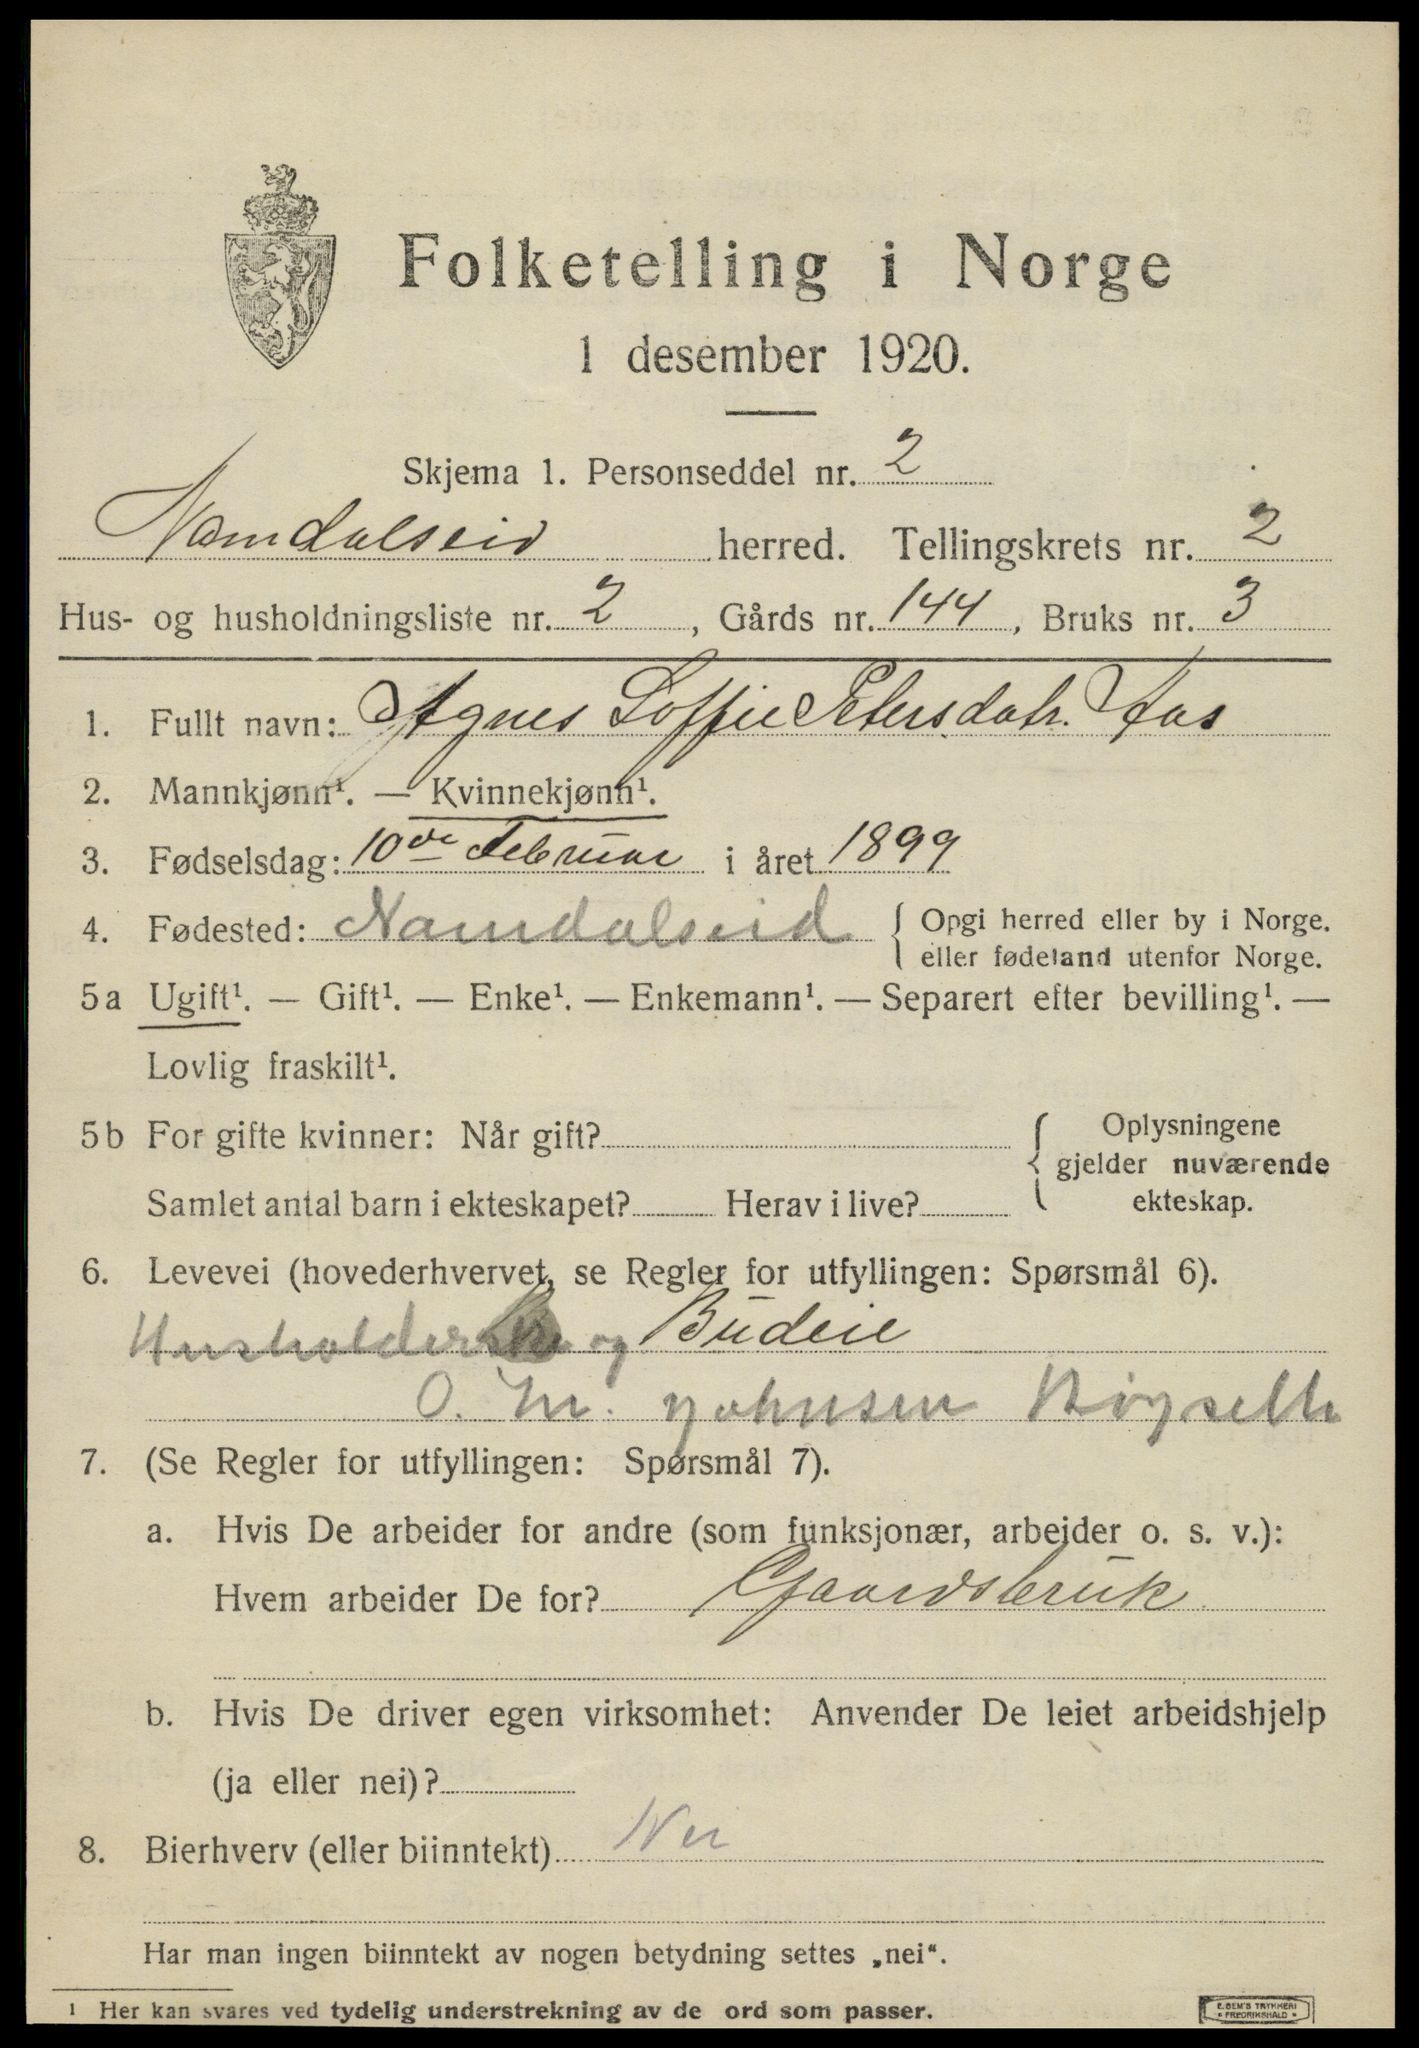 Folketelling i Norge
1 desember 1920.
Skjema 1. Personseddel nr. 2
Namdalseid herred. Tellingskrets nr. 2
Hus- og husholdningsliste nr. 2, Gårds nr. 144, Bruks nr. 3
1. Fullt navn: Agnes Soffie Petersdatr. Aas
2. Mannkjønn¹. — Kvinnekjønn¹.
3. Fødselsdag: 10de Februar i året 1899
4. Fødested: Namdalseid { Opgi herred eller by i Norge.
eller fødeland utenfor Norge.
5a Ugift¹. — Gift¹. — Enke¹. — Enkemann¹. — Separert efter bevilling¹. —
Lovlig fraskilt¹.
5b For gifte kvinner: Når gift? { Oplysningene
gjelder nuværende
Samlet antal barn i ekteskapet? Herav i live? ekteskap.
6. Levevei (hovederhvervet, se Regler for utfyllingen: Spørsmål 6).
Husholderske og Budeie
O. M. Johnsen
7. (Se Regler for utfyllingen: Spørsmål 7).
a. Hvis De arbeider for andre (som funksjonær, arbeider o. s. v.):
Hvem arbeider De for? Gaardsbruk
b. Hvis De driver egen virksomhet: Anvender De leiet arbeidshjelp
(ja eller nei)?
8. Bierhverv (eller biinntekt) Nei
Har man ingen biinntekt av nogen betydning settes „nei“.
1 Her kan svares ved tydelig understrekning av de ord som passer.
E. SEM'S TRYKKERI
FREDRIKSHALD